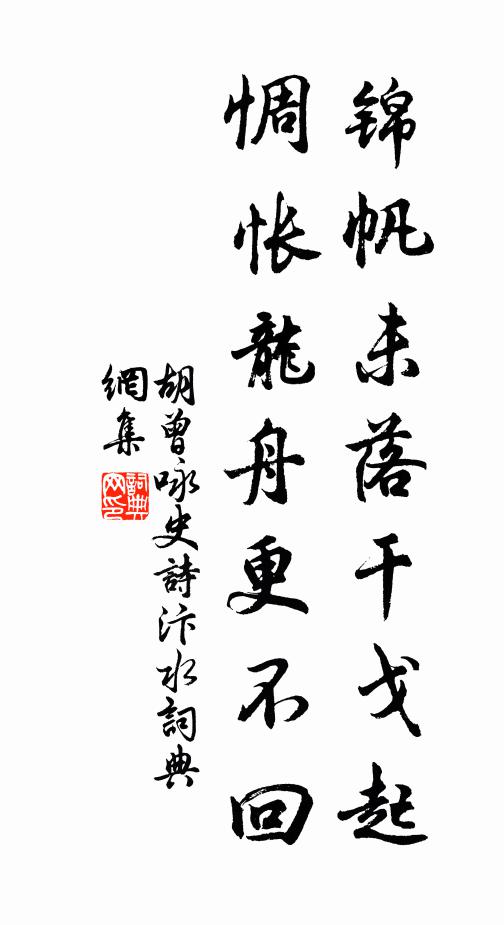 锦帆未落干戈起
惆怅龍舟更不回
胡曾咏史詩汴水詞典
網集
詞典网印